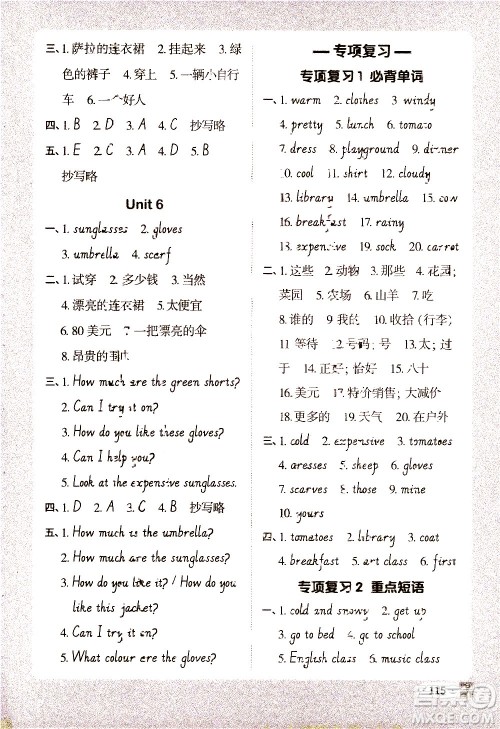 三、1. 萨拉的连衣裙 2. 挂起来 3. 绿
色的裤子 4. 穿上 5. 一辆小自行
车 6. 一个好人
四、1. B 2. D 3. A 4. C 抄写略
五、1. E 2. C 3. A 4. D 5. B
抄写略
Unit 6
一、1. sunglasses 2. gloves
3. umbrella 4. scarf
二、1. 试穿 2. 多少钱 3. 当然
4. 漂亮的连衣裙 5. 太便宜
6. 80 美元 7. 一把漂亮的伞
8. 昂贵的围巾
三、1. How much are the green shorts?
2. Can I try it on?
3. How do you like these gloves?
4. Can I help you?
5. Look at the expensive sunglasses!
四、1. D 2. A 3. C 4. B 抄写略
五、1. How much is the umbrella?
2. How much are the sunglasses?
3. How do you like it? / How do you
like this jacket?
4. Can I try them on?
5. What colour are the gloves?
专项复习
专项复习 1 必背单词
一、1. warm 2. clothes 3. windy
4. pretty 5. lunch 6. tomato
7. dress 8. playground 9. dinner
10. cool 11. shirt 12. cloudy
13. library 14. umbrella 15. colour
16. breakfast 17. rainy
18. expensive 19. sock 20. carrot
21. glove
二、1. 这些 2. 动物 3. 那些 4. 花园;
菜园 5. 农场 6. 山羊 7. 吃
8. 谁的 9. 我的 10. 收拾 (行李)
11. 等待 12. 号码; 号 13. 太; 过
于 14. 正好; 恰好 15. 八十
16. 美元 17. 特价销售; 大减价
18. 更多的 19. 天气 20. 在户外
三、1. cold 2. expensive 3. tomatoes
4. dresses 5. sheep 6. gloves
7. scarves 8. shoes 9. mine
10. yours
四、1. tomatoes 2. library 3. coat
4. breakfast 5. art class
专项复习 2 重点短语
一、1. cold and snowy 2. get up
3. go to bed 4. go to school
5. English class 6. art class
115